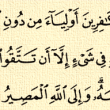 كَٰفِرِينَ أَوْلِيَآءَ مِن دُونِ
فِى شَىْءٍ إِلَّآ أَن تَتَّقُوا۟
هُۥ وَإِلَى ٱللَّهِ ٱلْمَصِيرُ